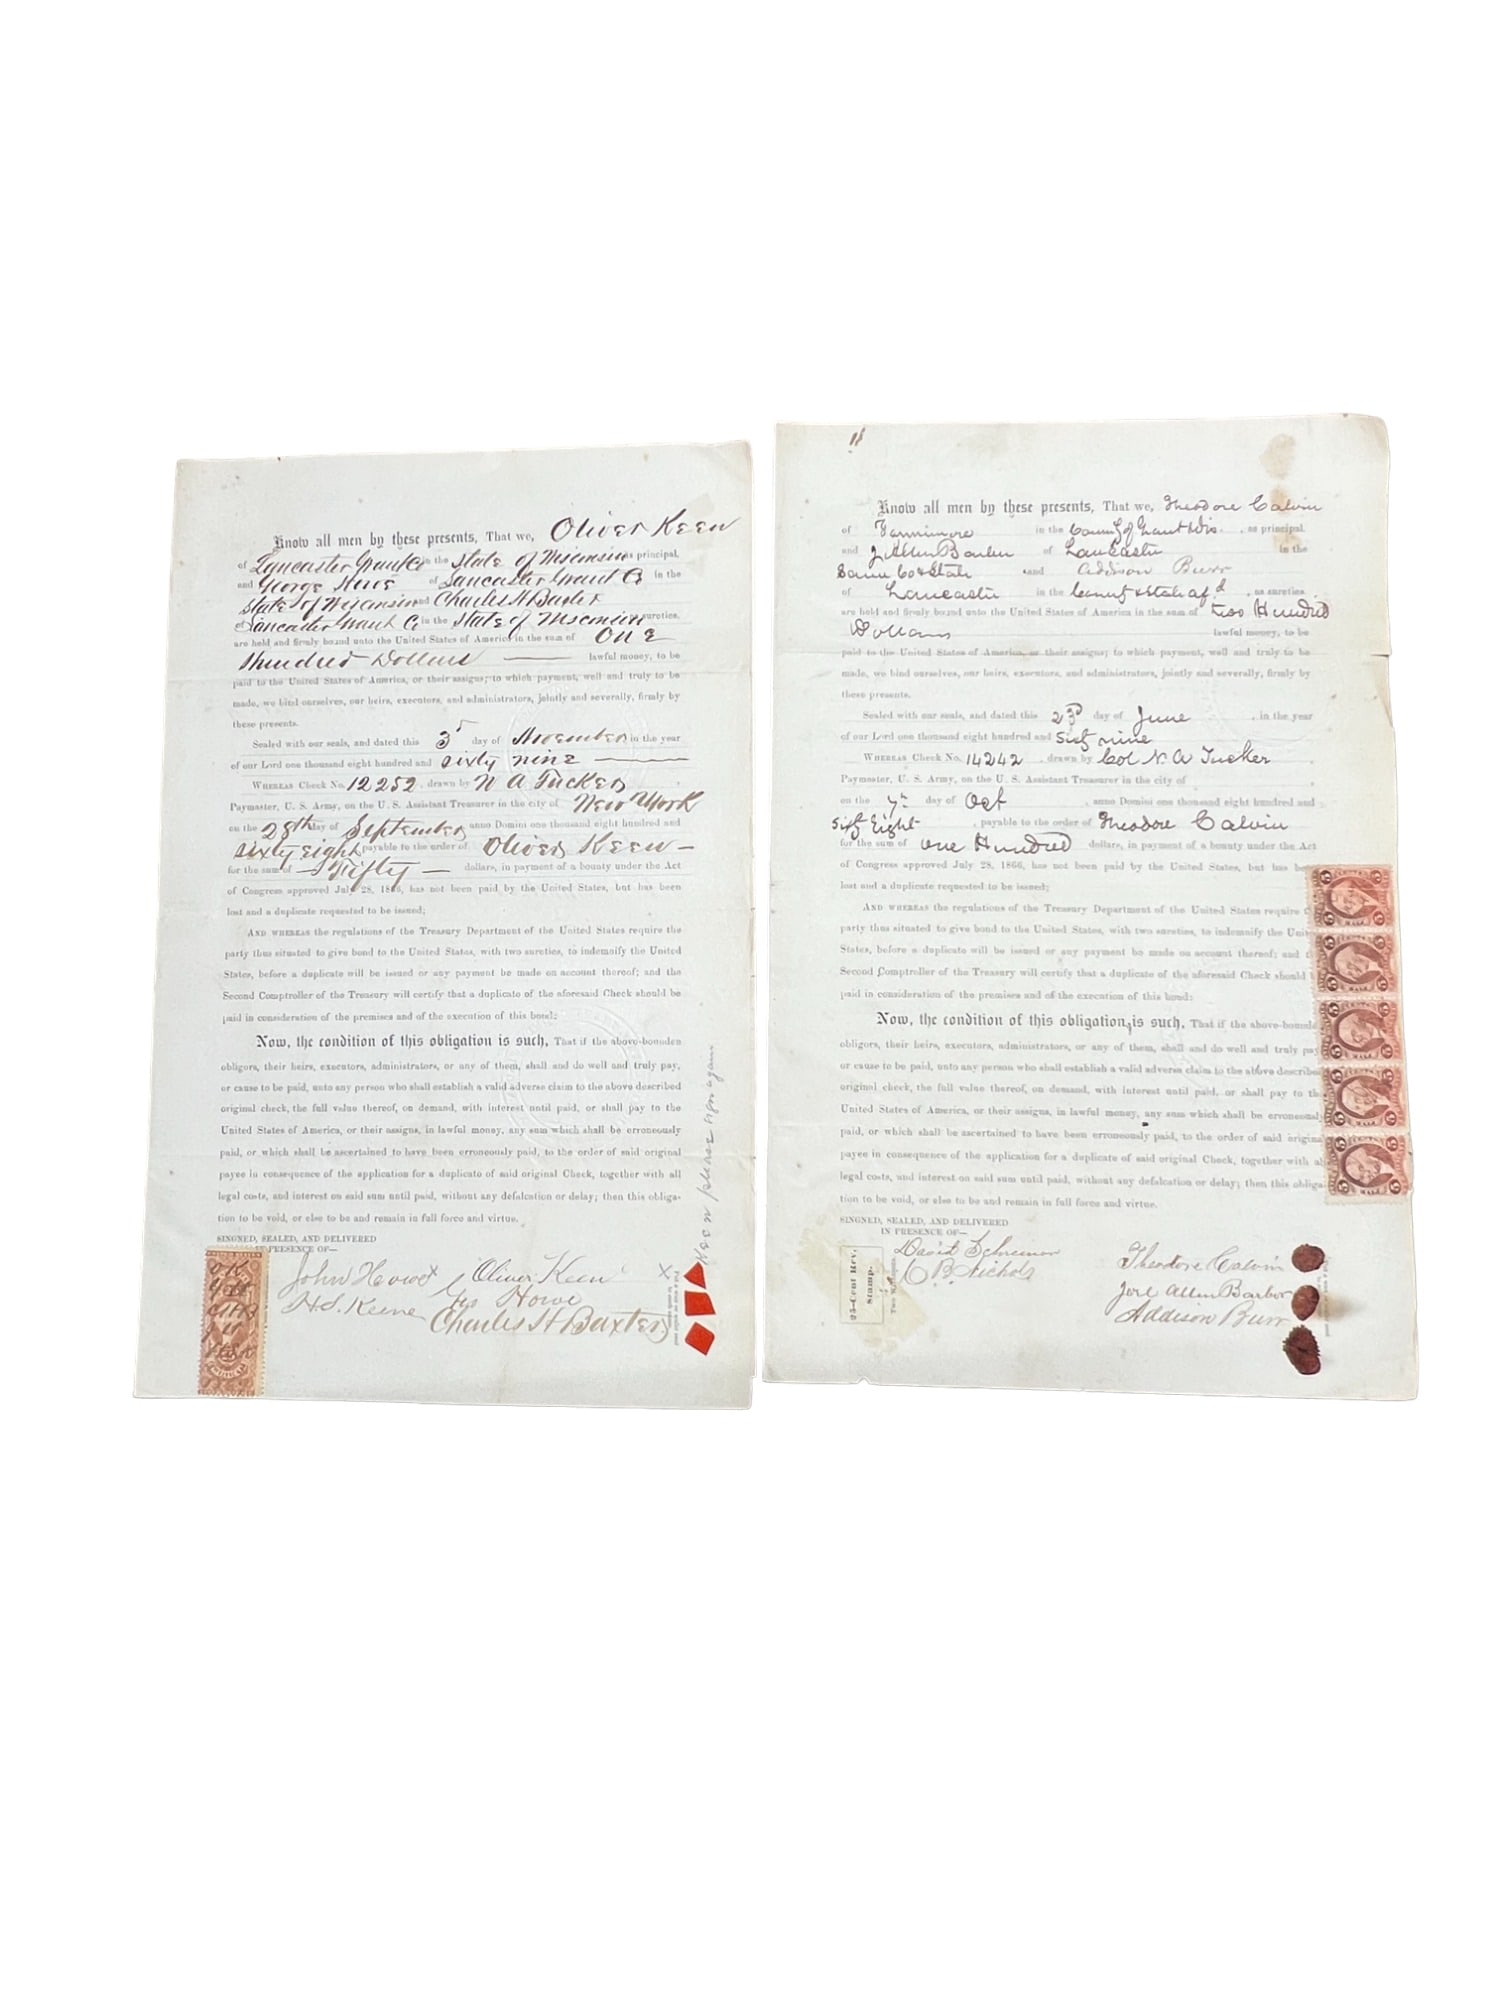 Know all men by these presents, That we, Oliver Keen
of Lancaster Grant Co in the State of Wisconsin as principal,
and George Howe of Lancaster Grant Co in the
State of Wisconsin and Charles H Baxter
of Lancaster Grant Co in the State of Wisconsin sureties,
are held and firmly bound unto the United States of America in the sum of One
Hundred Dollars lawful money, to be
paid to the United States of America, or their assigns; to which payment, well and truly to be
made, we bind ourselves, our heirs, executors, and administrators, jointly and severally, firmly by
these presents.
Sealed with our seals, and dated this 3d day of November in the year
of our Lord one thousand eight hundred and sixty nine
WHEREAS Check No. 12252, drawn by N A Tucker,
Paymaster, U. S. Army, on the U. S. Assistant Treasurer in the city of New York
on the 28th day of September anno Domini one thousand eight hundred and
sixty eight payable to the order of Oliver Keen —
for the sum of — Fifty — dollars, in payment of a bounty under the Act
of Congress approved July 28, 1866, has not been paid by the United States, but has been
lost and a duplicate requested to be issued;
AND WHEREAS the regulations of the Treasury Department of the United States require the
party thus situated to give bond to the United States, with two sureties, to indemnify the United
States, before a duplicate will be issued or any payment be made on account thereof; and the
Second Comptroller of the Treasury will certify that a duplicate of the aforesaid Check should be
paid in consideration of the premises and of the execution of this bond:
Now, the condition of this obligation is such, That if the above-bounden
obligors, their heirs, executors, administrators, or any of them, shall and do well and truly pay,
or cause to be paid, unto any person who shall establish a valid adverse claim to the above described
original check, the full value thereof, on demand, with interest until paid, or shall pay to the
United States of America, or their assigns, in lawful money, any sum which shall be erroneously
paid, or which shall be ascertained to have been erroneously paid, to the order of said original
payee in consequence of the application for a duplicate of said original Check, together with all
legal costs, and interest on said sum until paid, without any defalcation or delay; then this obliga-
tion to be void, or else to be and remain in full force and virtue.
SINGNED, SEALED, AND DELIVERED
IN PRESENCE OF—
John Howe x Oliver Keen x
H. S. Keene Geo Howe
Charles H Baxter
Keen please sign again
Know all men by these presents, That we, Theodore Calvin
of Fennimore in the County of Grant Wis. as principal,
and J Allen Barber of Lancaster in the
Same Co & State and Addison Burr
of Lancaster in the County & State afd, as sureties
are held and firmly bound unto the United States of America in the sum of two Hundred
Dollars lawful money, to be
paid to the United States of America, or their assigns; to which payment, well and truly to be
made, we bind ourselves, our heirs, executors, and administrators, jointly and severally, firmly by
these presents.
Sealed with our seals, and dated this 23d day of June, in the year
of our Lord one thousand eight hundred and sixty nine
WHEREAS Check No. 14242, drawn by Col N A Tucker
Paymaster, U. S. Army, on the U. S. Assistant Treasurer in the city of
on the 7th day of Oct, anno Domini one thousand eight hundred and
Sixty Eight, payable to the order of Theodore Calvin
for the sum of one Hundred dollars, in payment of a bounty under the Act
of Congress approved July 28, 1866, has not been paid by the United States, but has been
lost and a duplicate requested to be issued;
AND WHEREAS the regulations of the Treasury Department of the United States require
party thus situated to give bond to the United States, with two sureties, to indemnify the Unit
States, before a duplicate will be issued or any payment be made on account thereof; and
Second Comptroller of the Treasury will certify that a duplicate of the aforesaid Check should
paid in consideration of the premises and of the execution of this bond:
Now, the condition of this obligation is such, That if the above-bounde
obligors, their heirs, executors, administrators, or any of them, shall and do well and truly pay
or cause to be paid, unto any person who shall establish a valid adverse claim to the above describe
original check, the full value thereof, on demand, with interest until paid, or shall pay to th
United States of America, or their assigns, in lawful money, any sum which shall be erroneousl
paid, or which shall be ascertained to have been erroneously paid, to the order of said origina
payee in consequence of the application for a duplicate of said original Check, together with al
legal costs, and interest on said sum until paid, without any defalcation or delay; then this obliga-
tion to be void, or else to be and remain in full force and virtue.
SINGNED, SEALED, AND DELIVERED
IN PRESENCE OF—
David Schreiner Theodore Calvin
B. Nichols Joel Allen Barber
Addison Burr
25-Cent Rev.
Stamp.